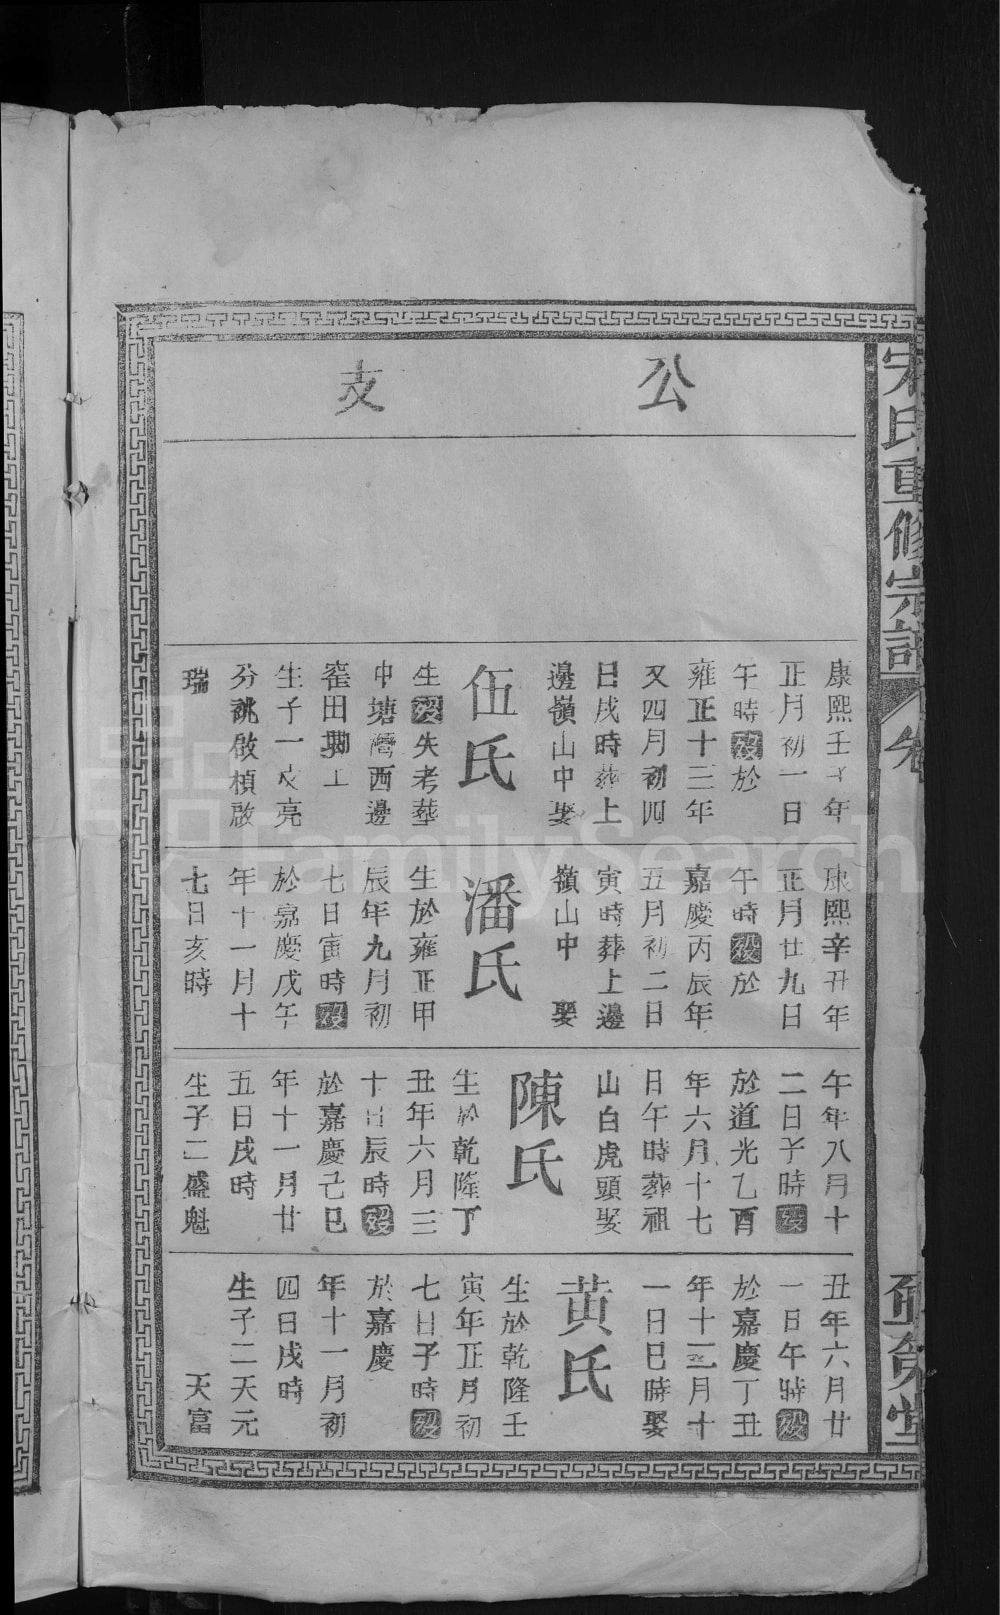 宋氏重修宗譜
卷
公
支
康熙壬子年
正月初一日
午時殁於
雍正十三年
又四月初四
日戌時葬上
邊嶺山中娶
伍氏
生殁失考葬
中塘灣西邊
窰田塅上
生子一文亮
分祧啟楨啟
瑞
康熙辛丑年
正月廿九日
午時殁於
嘉慶丙辰年
五月初二日
寅時葬上邊
嶺山中 娶
潘氏
生於雍正甲
辰年九月初
七日寅時殁
於嘉慶戊午
年十一月十
七日亥時
午年八月十
二日子時殁
於道光乙酉
年六月十七
日午時葬祖
山白虎頭娶
陳氏
生於乾隆丁
丑年六月三
十日辰時殁
於嘉慶己巳
年十一月廿
五日戌時
生子二盛魁
丑年六月廿
一日午時殁
於嘉慶丁丑
年十二月十
一日巳時娶
黄氏
生於乾隆壬
寅年正月初
七日子時殁
於嘉慶
年十一月初
四日戌時
生子二天元
天富
FamilySearch